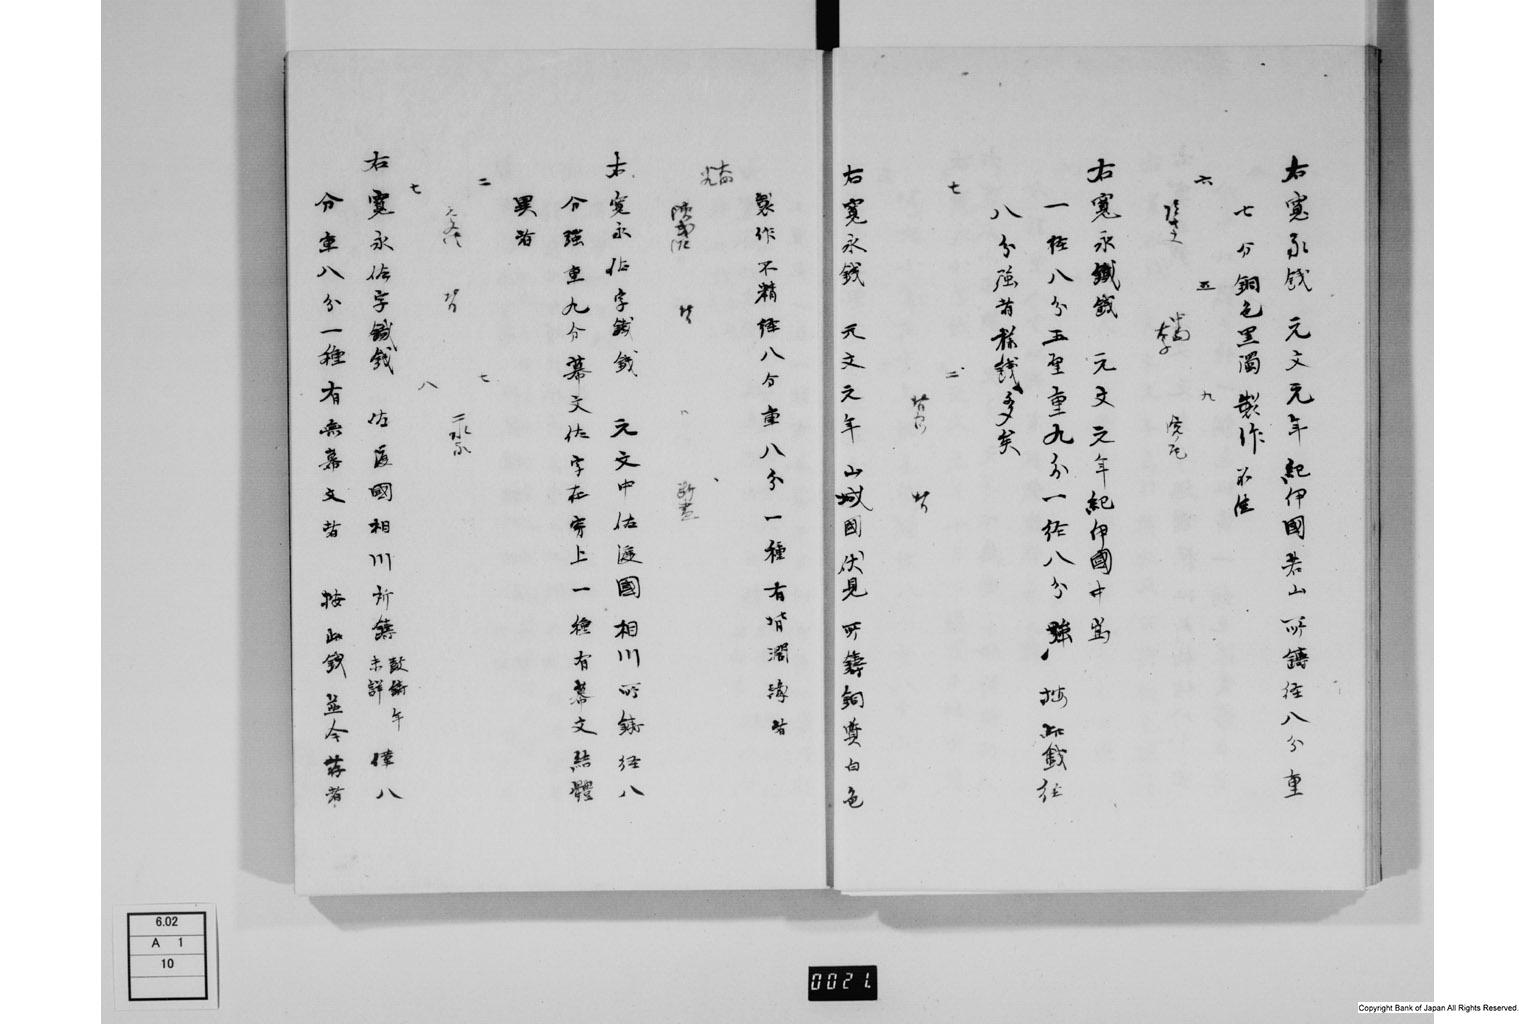 右寛永錢 元文元年紀伊國若山所鑄径八分重
七分銅色黒濁製作不佳
六
五
九
右寛永鐵錢 元文元年紀伊國中嶌
一径八分五厘重九分一径八分強 按此錢径
八分強者稀錢多矣
七
二
右寛永錢 元文元年 山城國伏見所鑄銅質白色
製作不精径八分重八分一種有背濶縁者
右寛永佐字鐵錢 元文中佐渡國相川所鑄径八
分強重九分幕文佐字在穿上一種有幕文結體
異者
二
七
七
八
右寛永佐字鐵錢 佐渡國相川所鑄 鼓鑄年未詳 径八
分重八分一種有無幕文者 按此錢並今存者
6.02
A 1
10
0021
Copyright Bank of Japan All Rights Reserved.